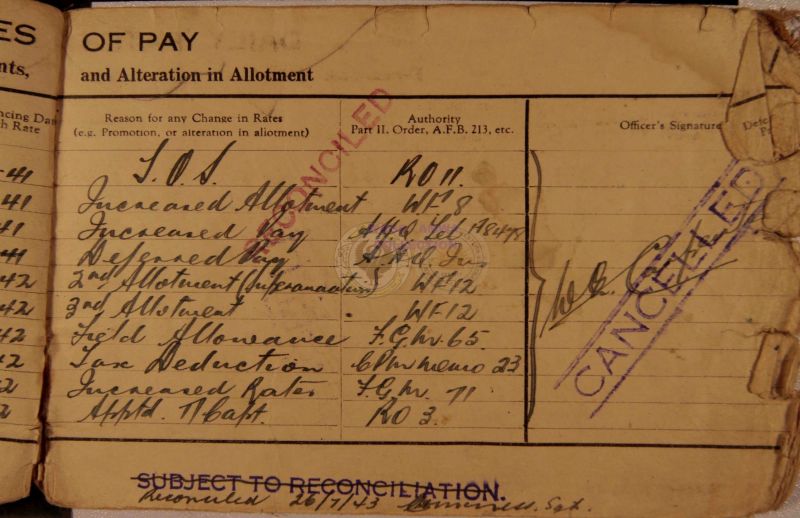 ES OF PAY
nts, and Alteration in Allotment
Reason for any Change in Rates
(e.g. Promotion, or alteration in allotment)
Authority
Part II. Order, A.F.B. 213, etc.
Officer's Signature
-41 S.O.S. RO 11.
41 Increased Allotment WF 8
41 Increased Pay
41 Deferred Pay
42 2nd Allotment WF 12
42 3rd Allotment WF 12
42 Field Allowance F.G.M. 65.
42 Tax Deduction Memo 23
2 Increased Rates F.G.M. 71
2 Apptd. T/Capt. RO 3.
RECONCILED
CANCELLED
SUBJECT TO RECONCILIATION.
Reconciled 26/7/43 Sgt.